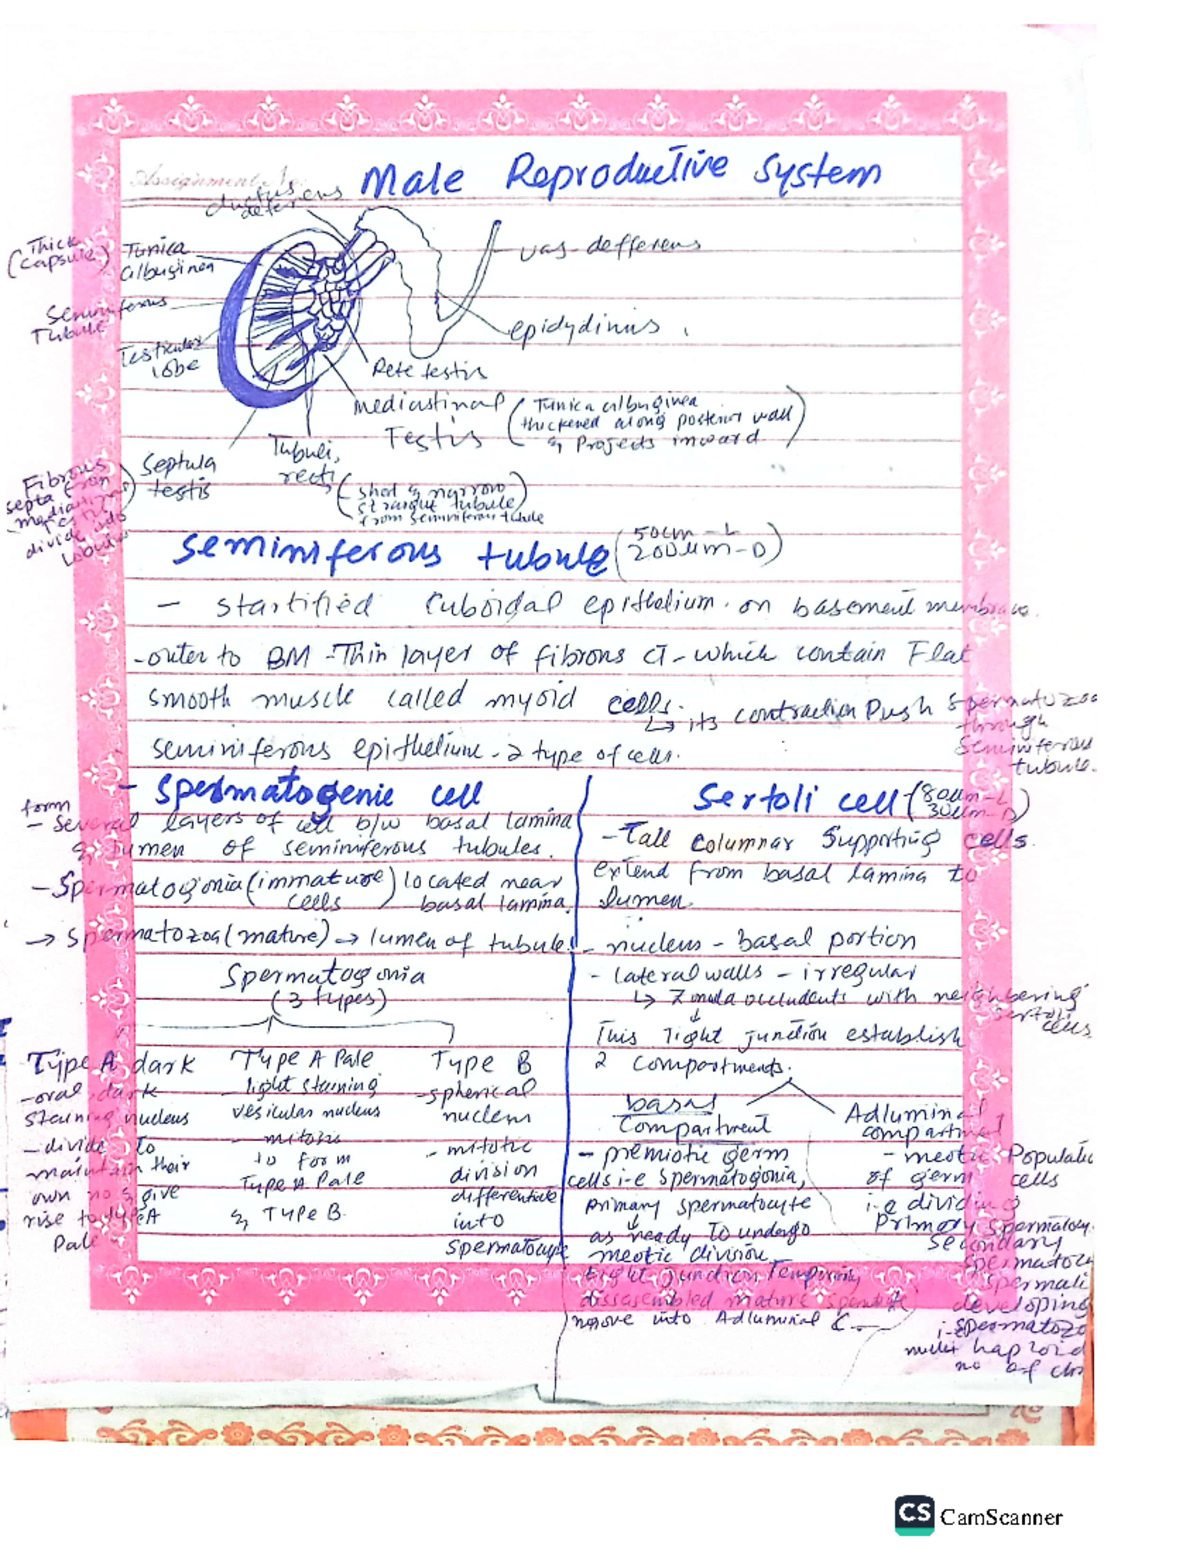 Assignment
Male Reproductive System
ductus
deferens
Thick
(capsule)
Tunica
albuginea
vas-defferens
Seminiferous
Tubule
epidydimis
Testicular
lobe
Rete testis
mediastinal
Testis
(Tunica albuginea
thickened along posterior wall
& Projects inward)
Tubuli,
recti
(short & narrow
straigne tubule
from seminiferous tubule)
Septula
testis
Fibrous
septa from
mediastinal
testis
divide into
lobules
seminiferous tubule (50cm-L
200um-D)
- startified cuboidal epithelium on basement membrane.
-outer to BM -Thin layer of fibrons CT - which contain Flat
smooth muscle called myoid cells.
↳ its contraction Push spermatozoa
through
seminiferous
tubule.
seminiferous epithelium - 2 type of cells.
- Spermatogenic cell
form
- several layers of cell b/w basal lamina
& lumen of seminiferous tubules.
- Spermatogonia (immature cells) located near
basal lamina.
→ Spermatozoa (mature) → lumen of tubule.
Spermatogonia
(3 types)
Type A dark
-oval dark
staining nucleus
- divide to
maintain their
own no & give
rise to type A
Pale
Type A Pale
- light staining
vesicular nucleus
- mitosis
to form
Type A Pale
& Type B.
Type B
-spherical
nucleus
- mitotic
division
differentiate
into
spermatocyte
Sertoli cell (80um-L
30um-D)
- Tall columnar Supporting cells.
extend from basal lamina to
lumen
- nucleus - basal portion
- lateral walls - irregular
↳ Zonula occludents with neighbering
sertoli
cells
This tight junction establish
2 compartments.
basal
Compartment
- premiotic germ
cells i.e spermatogonia,
primary spermatocyte
as ready to undergo
meotic division
tight junction Temporily
dissasembled mature
move into Adluminal C.
Adluminal
compartment
- meotic Populatio
of germ cells
i.e dividing
Primary spermatocy.
Secondary
spermatocy
spermati
developing
i.e spermatozo
haploid
no of ch
CS CamScanner